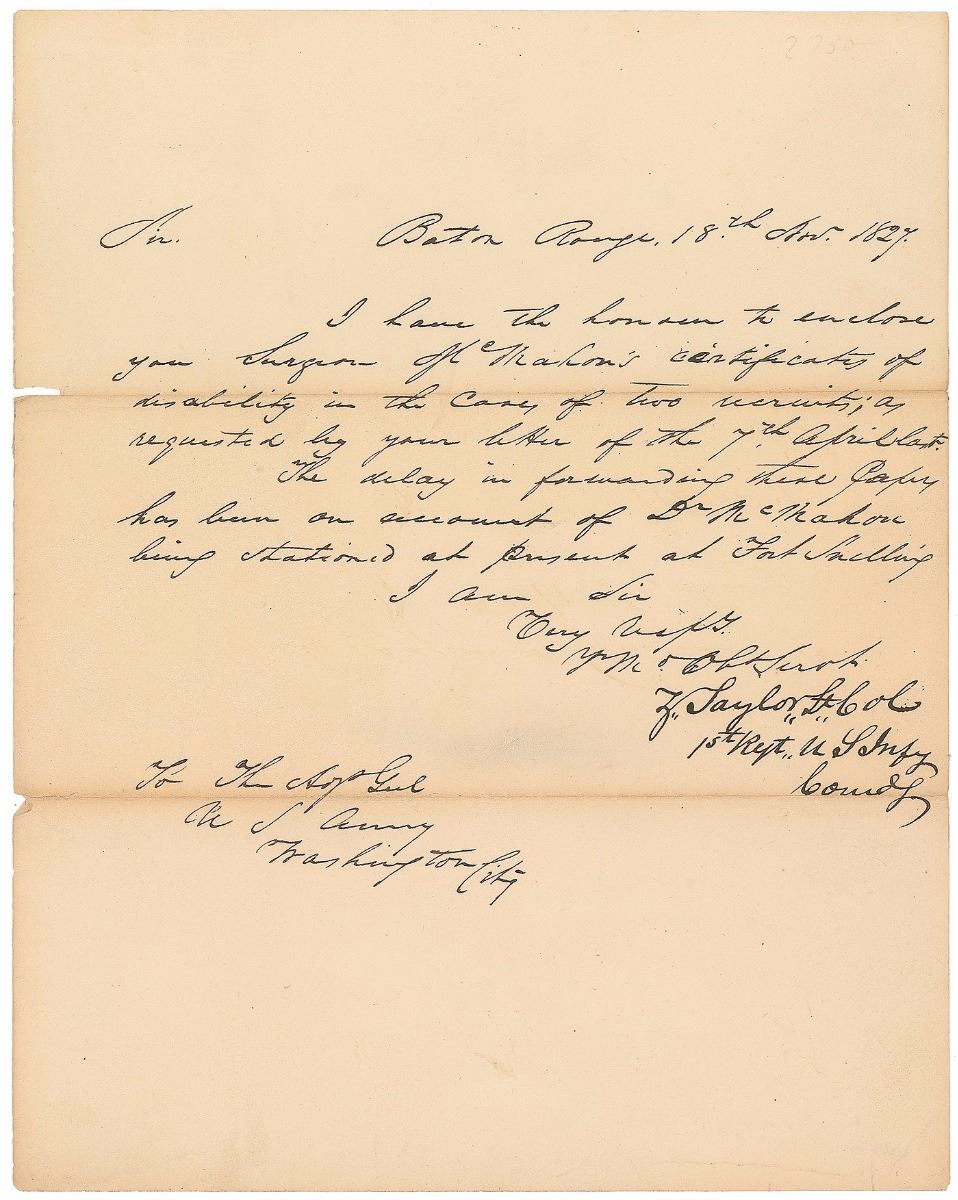 2750
Sir. Baton Rouge, 18th Nov. 1827.
I have the honour to enclose
you Surgeon McMahon's certificates of
disability in the cases of two recruits; as
requested by your letter of the 7th April last.
The delay in forwarding these papers
has been on account of Dr McMahon
being stationed at present at Fort Snelling
I am Sir
Very Respy.
Yr Mo Obt Servt
Z,, Taylor,, Lt,, Col
1st Regt,, U S Infy
Comdg
To The Adjt Genl
U S Army
Washington City